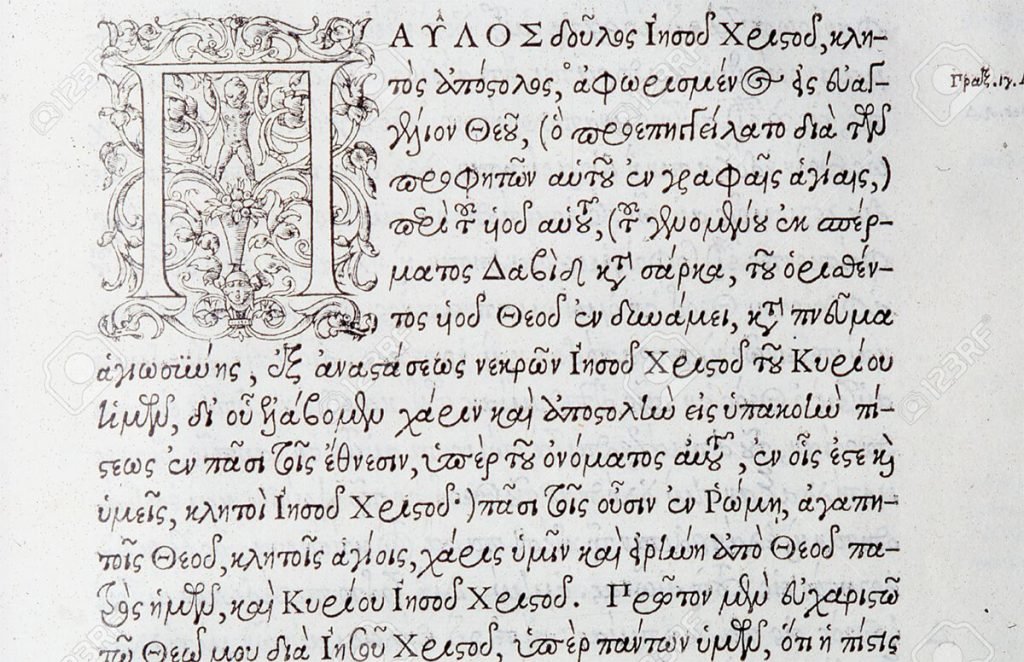 ΠΑΥ͂ΛΟΣ δοῦλος Ἰησοῦ Χριστοῦ, κλη-
τὸς ἀπόστολος, ἀφωρισμένος εἰς εὐαγ-
Πραξ. ιγ. Α
γέλιον Θεοῦ, (ὃ προεπηγγείλατο διὰ τῶν
προφητῶν αὑτοῦ ἐν γραφαῖς ἁγίαις,)
περὶ τοῦ υἱοῦ αὑτοῦ, (τοῦ γενομένου ἐκ σπέρ-
ματος Δαβὶδ κατὰ σάρκα, τοῦ ὁρισθέν-
τος υἱοῦ Θεοῦ ἐν δυνάμει, κατὰ πνεῦμα
ἁγιωσύνης, ἐξ ἀναστάσεως νεκρῶν Ἰησοῦ Χριστοῦ τοῦ Κυρίου
ἡμῶν, δι' οὗ ἐλάβομεν χάριν καὶ ἀποστολὴν εἰς ὑπακοὴν πί-
στεως ἐν πᾶσι τοῖς ἔθνεσιν, ὑπὲρ τοῦ ὀνόματος αὑτοῦ, ἐν οἷς ἐστε καὶ
ὑμεῖς, κλητοὶ Ἰησοῦ Χριστοῦ·) πᾶσι τοῖς οὖσιν ἐν Ῥώμῃ, ἀγαπη-
τοῖς Θεοῦ, κλητοῖς ἁγίοις, χάρις ὑμῖν καὶ εἰρήνη ἀπὸ Θεοῦ πα-
τρὸς ἡμῶν, καὶ Κυρίου Ἰησοῦ Χριστοῦ. Πρῶτον μὲν εὐχαριστῶ
τῷ Θεῷ μου διὰ Ἰησοῦ Χριστοῦ, ὑπὲρ πάντων ὑμῶν, ὅτι ἡ πίστις